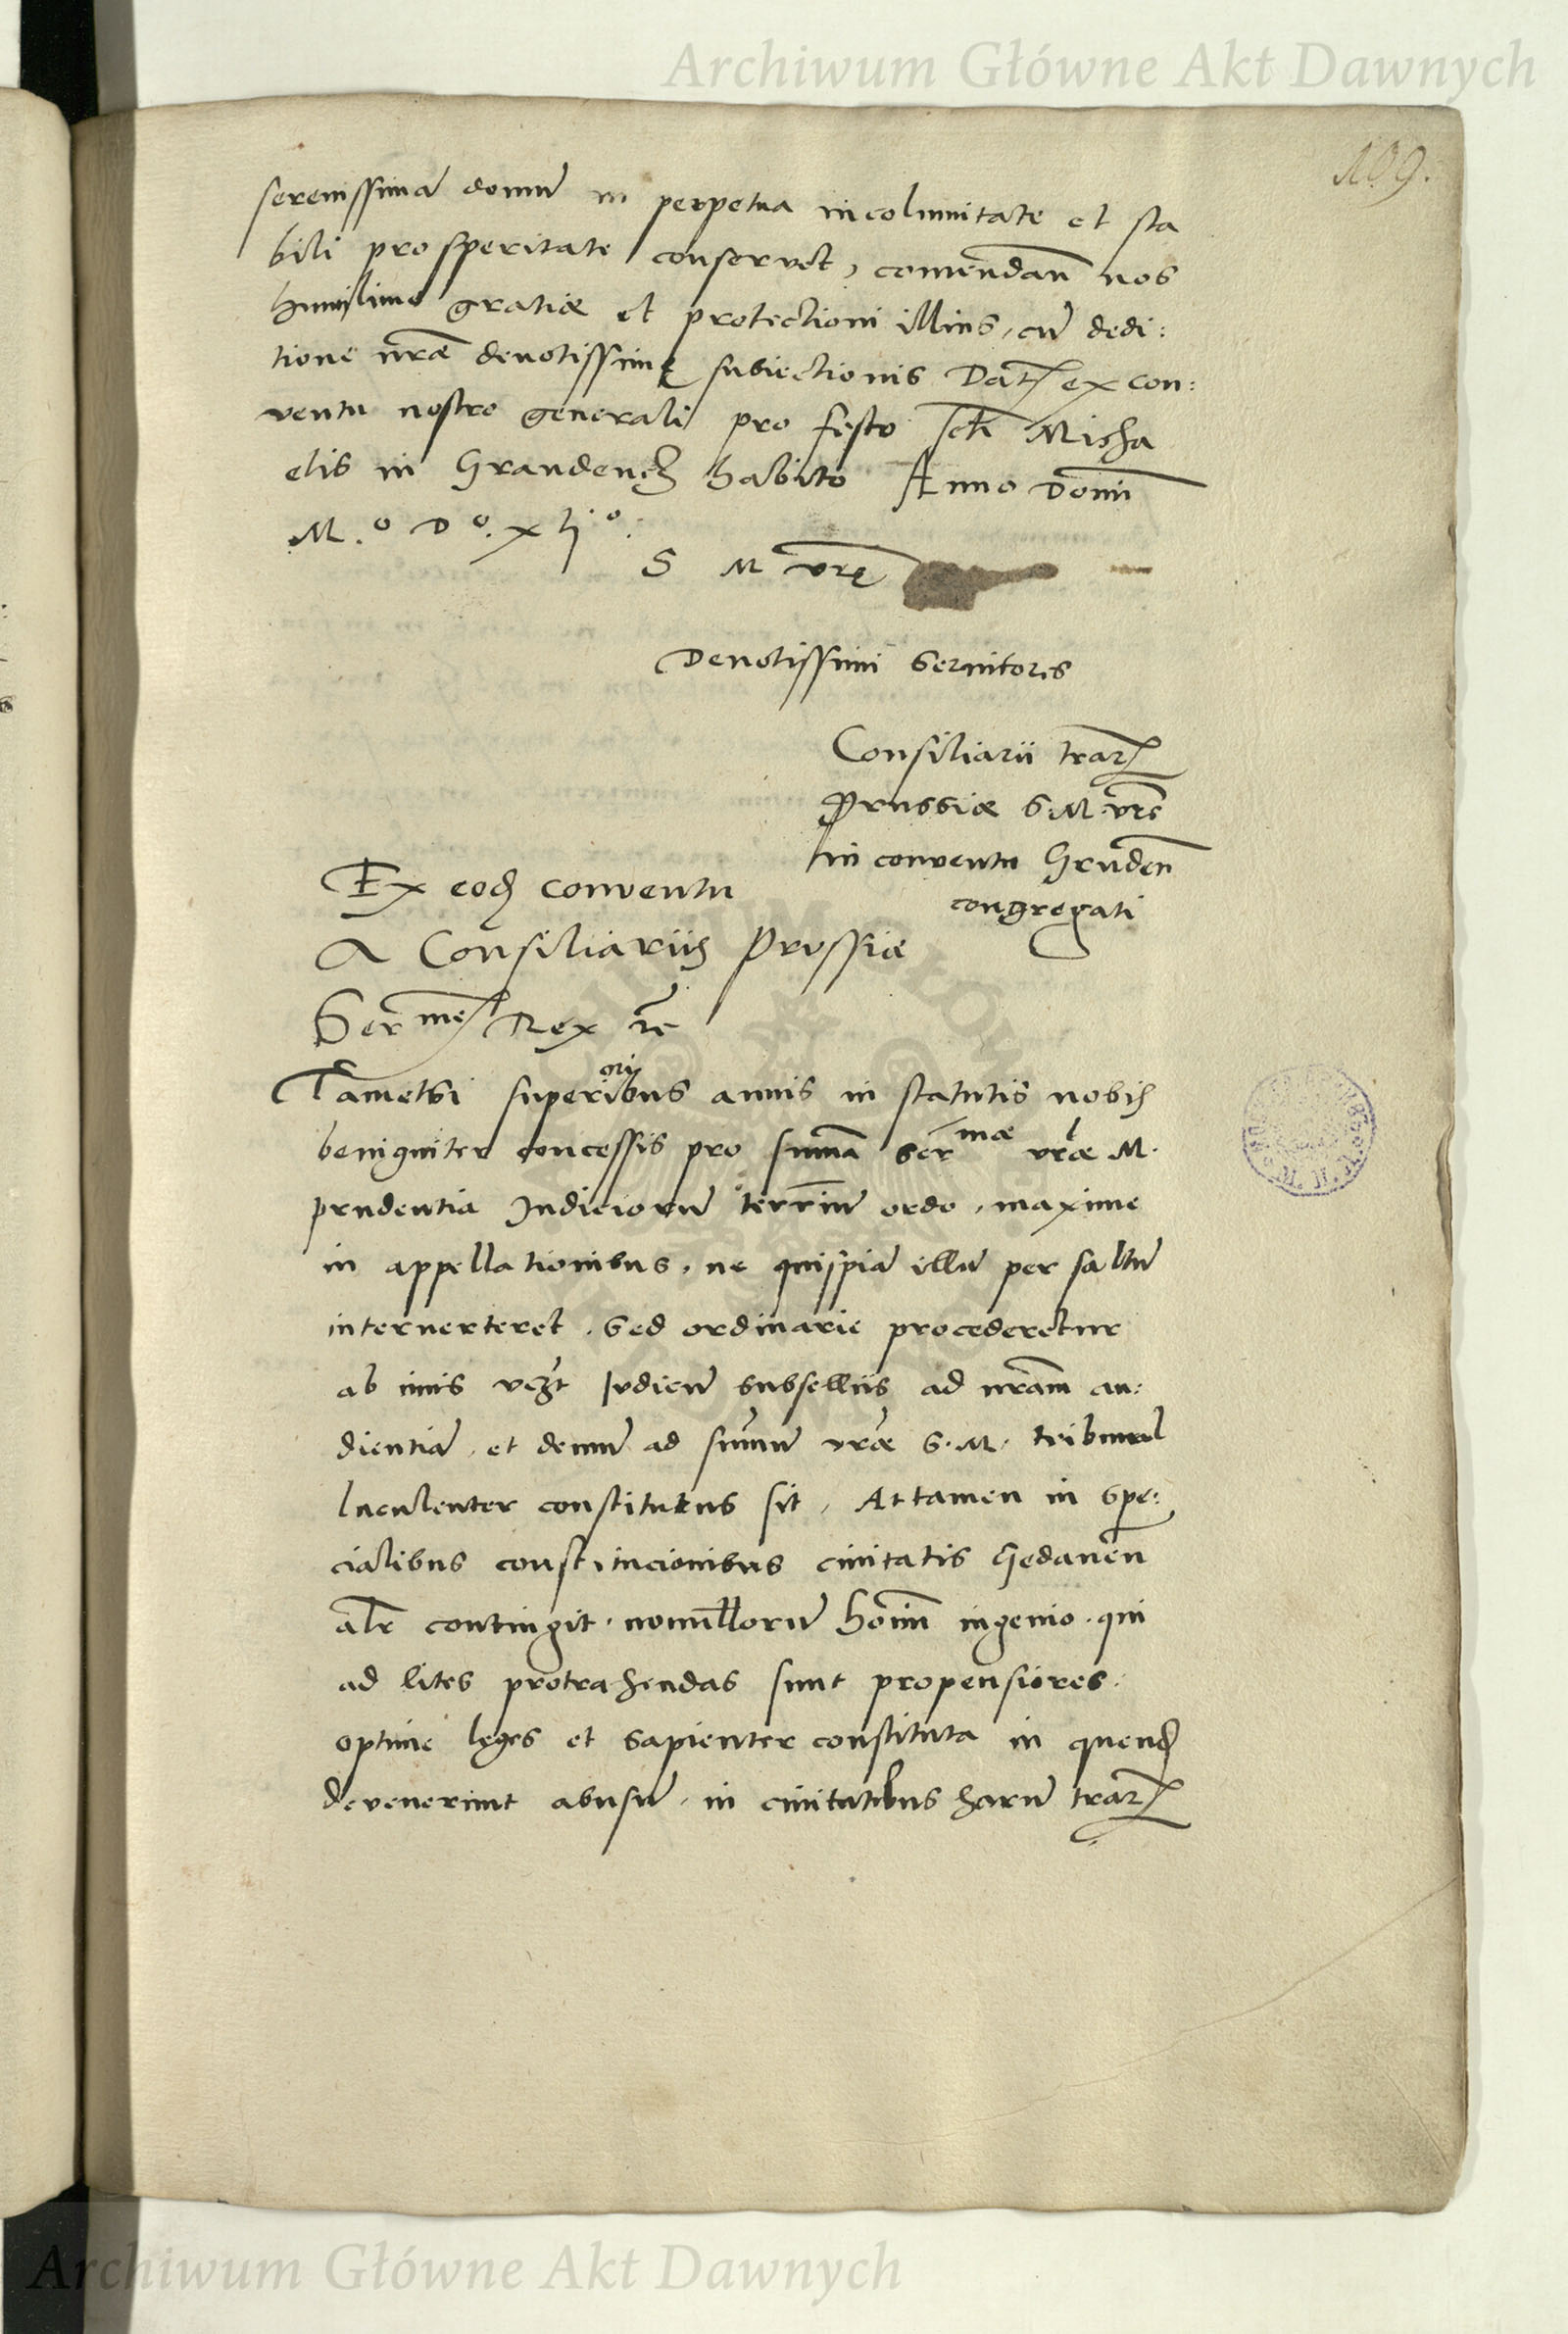 Archiwum Główne Akt Dawnych
109.
serenissimā domū in perpetua incolumitate et sta
bili prosperitate conservet, comendan̄ nos
humilime gratiæ et protectioni illius, cū dedi:
tione nr̄æ devotissimę subiectionis Dat̄ ex con:
ventu nostro generali pro festo Sc̄ti Micha
elis in Graudencz habito Anno Domī
M.º Dº. xlj.º.
S M vrę
Devotissimi Servitores
Consiliarii trar̄
Prussiæ S. M. vrē
in conventu Gruden̄
congregati
Ex eod conventu
A Consiliariis Prussiæ
Ser me Rex rc
Tametsi superioribus annis in statutis nobis
benigniter concessis pro summa Ser mæ vræ M.
prudentia Judiciorū terr̄m ordo, maxime
in appellationibus, ne quispiā illū per saltū
interverteret, sed ordinarie procederetur
ab imis vezt Judicū subselliis ad nr̄am au:
dientiā, et demū ad sumū vræ S. M. tribunal
luculenter constitutus sit, Attamen in spe:
cialibus constitucionibus civitatis Gedanen̄
alr̄ contingit, nonnullorū hoīm ingenio, qui
ad lites protrahendas sunt propensiores.
optime leges et sapienter constituta in quend
devenerint abusū, in civitatibus harū trar̄
Archiwum Główne Akt Dawnych